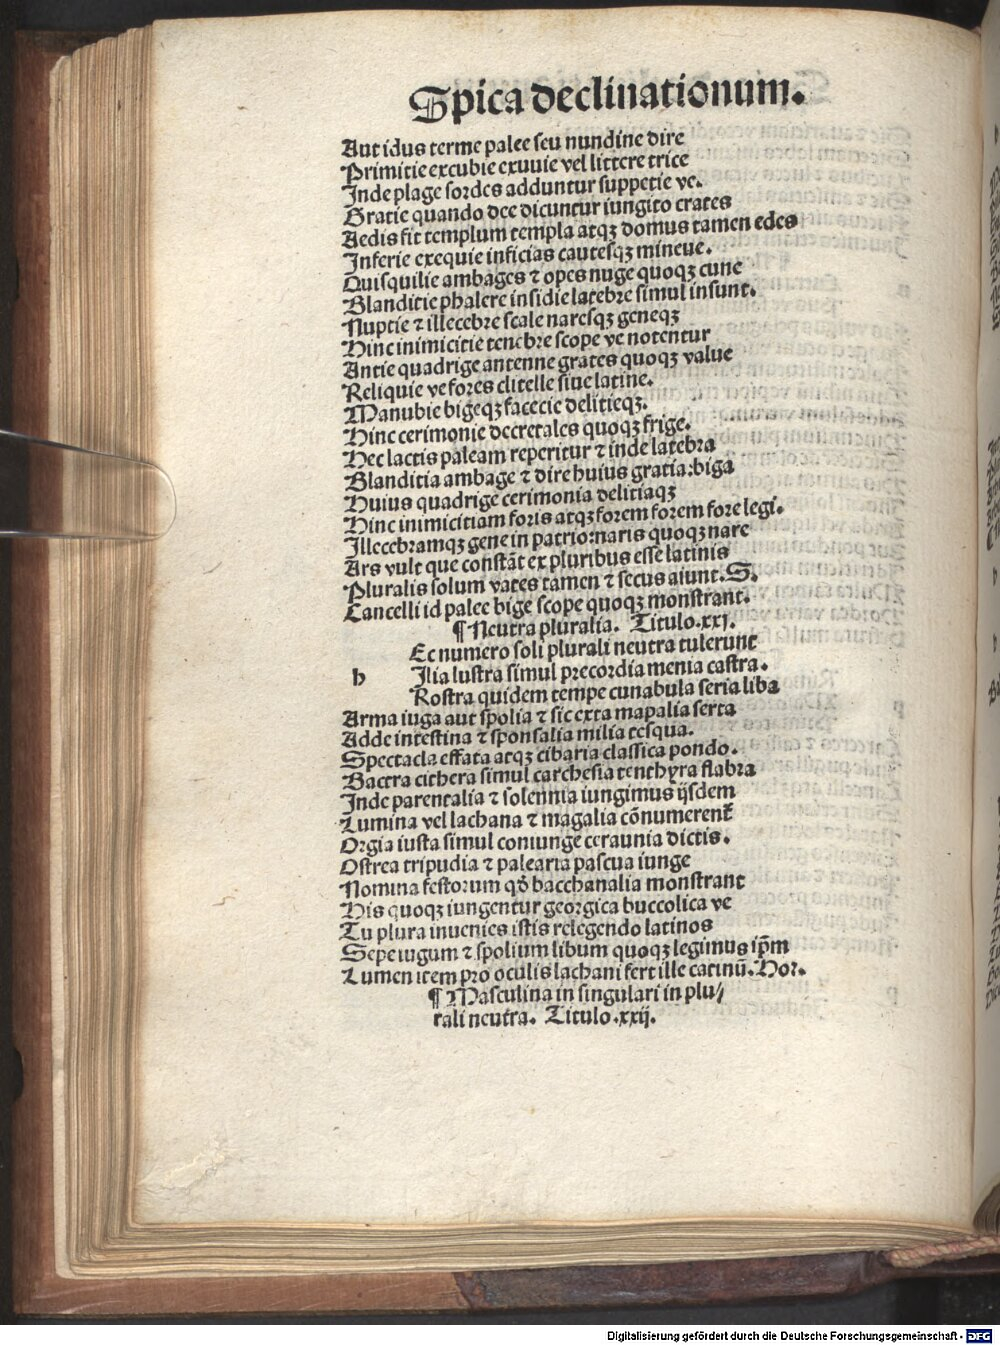 Spica declinationum.
Aut idus terme palee seu nundine dire
Primitie excubie exuuie vel littere trice
Inde plage sordes adduntur suppetie ve.
Gratie quando dee dicuntur iungito crates
Aedis fit templum templa atqꝫ domus tamen edes
Inferie exequie inficias cautesqꝫ mineue.
Quisquilie ambages ⁊ opes nuge quoqꝫ cune
Blanditie phalere insidie latebre simul insunt.
Nuptie ⁊ illecebre scale naresqꝫ geneqꝫ
Hinc inimicitie tenebre scope ve notentur
Antie quadrige antenne grates quoqꝫ value
Reliquie ve fores clitelle siue latine.
Manubie bigeqꝫ facecie delitieqꝫ.
Hinc cerimonie decretales quoqꝫ frige.
Hec lactis paleam reperitur ⁊ inde latebra
Blanditia ambage ⁊ dire huius gratia:biga
Huius quadrige cerimonia delitiaqꝫ
Hinc inimicitiam foris atqꝫ forem forem fore legi.
Illecebramqꝫ gene in patrio:naris quoqꝫ nare
Ars vult que constāt ex pluribus esse latinis
Pluralis solum vates tamen ⁊ secus aiunt.S.
Cancelli id palee bige scope quoqꝫ monstrant.
¶ Neutra pluralia. Titulo.xxi.
Ec numero soli plurali neutra tulerunt
h Ilia lustra simul precordia menia castra.
Rostra quidem tempe cunabula seria liba
Arma iuga aut spolia ⁊ sic exta mapalia serta
Adde intestina ⁊ sponsalia milia tesqua.
Spectacla effata atqꝫ cibaria classica pondo.
Bactra cithera simul carchesia tenthyra flabra
Inde parentalia ⁊ solennia iungimus ijsdem
Lumina vel lachana ⁊ magalia cōnumerent᷑
Orgia iusta simul coniunge ceraunia dictis.
Ostrea tripudia ⁊ palearia pascua iunge
Nomina festorum qđ bacchanalia monstrant
His quoqꝫ iungentur georgica buccolica ve
Tu plura inuenies istis relegendo latinos
Sepe iugum ⁊ spolium libum quoqꝫ legimus ip̄m
Lumen item pro oculis lachani fert ille catinū.Hor.
¶ Masculina in singulari in plu/
rali neutra. Titulo.xxij.
Digitalisierung gefördert durch die Deutsche Forschungsgemeinschaft - DFG